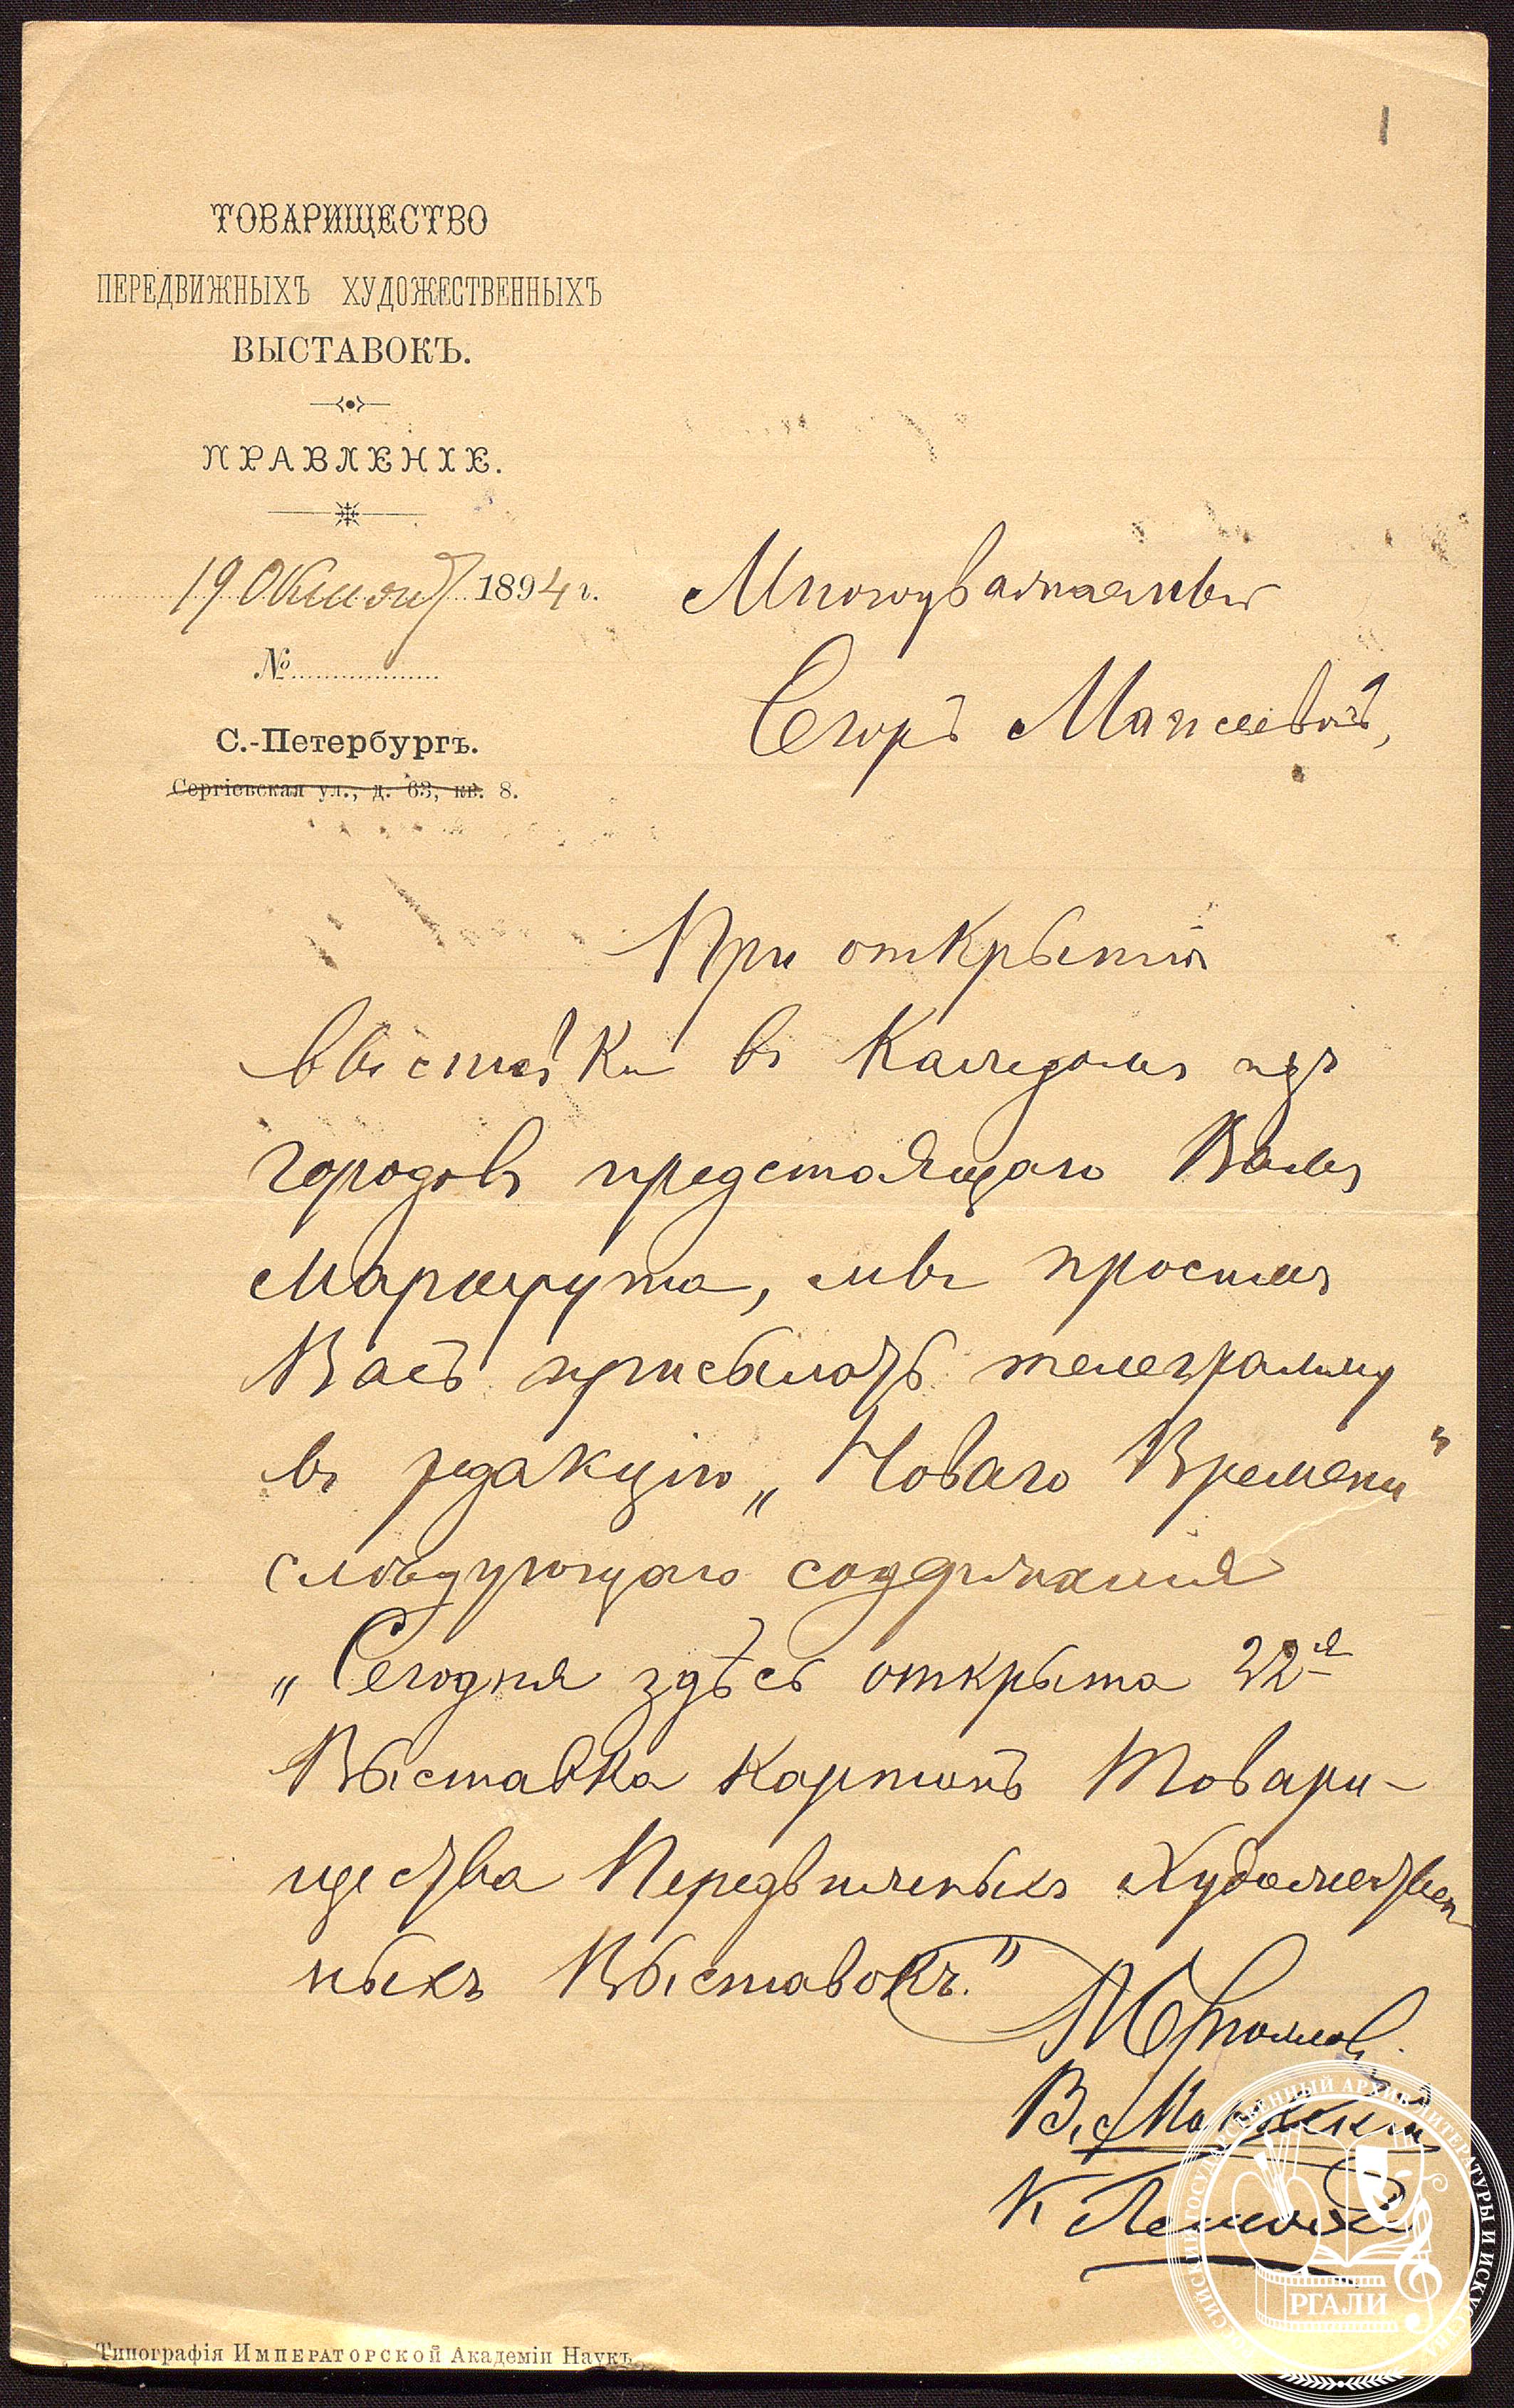 1
ТОВАРИЩЕСТВО
ПЕРЕДВИЖНЫХЪ ХУДОЖЕСТВЕННЫХЪ
ВЫСТАВОКЪ.
ПРАВЛЕНІЕ.
19 Октября 1894 г.
№
С.-Петербургъ.
Сергіевская ул., д. 63, кв. 8.
Многоуважаемый
Егоръ Моисеевичъ,
При открытіи
выставки въ каждомъ изъ
городовъ предстоящаго Вамъ
маршрута, мы просимъ
Васъ присылать телеграмму
въ редакцію „Новаго Времени"
слѣдующаго содержанія
„Сегодня здѣсь открыта 22ая
Выставка картинъ Товари-
щества Передвижныхъ Художествен-
ныхъ Выставокъ."
В. Маковскій
К Лемохъ
РГАЛИ
Типографія Императорской Академіи Наукъ